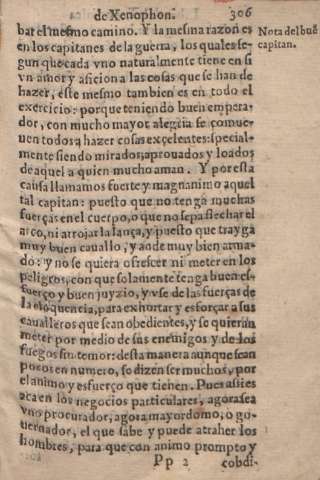 de Xenophon. 306
bar el mesmo camino. Y la mesma razon es
Nota del buē
en los capitanes de la guerra, los quales se-
capitan.
gun que cada vno naturalmente tiene en si
vn amor y aficion a las cosas que se han de
hazer, este mesmo tambien es en todo el
exercicio: porque teniendo buen empera-
dor, con mucho mayor alegria se comue-
uen todos a hazer cosas excelentes: special-
mente siendo mirados, aprouados y loados
de aquel a quien mucho aman. Y por esta
causa llamamos fuerte y magnanimo aquel
tal capitan: puesto que no tenga muchas
fuerças en el cuerpo, o que no sepa flechar el
arco, ni arrojar la lança, y puesto que trayga
muy buen cauallo, y ande muy bien arma-
do: y no se quiera ofrescer ni meter en los
peligros, con que solamente tenga buen es-
fuerço y buen juyzio, y vse de las fuerças de
la eloquencia, para exhortar y esforçar a sus
caualleros que sean obedientes, y se quieran
meter por medio de sus enemigos y de los
fuegos sin temor: desta manera aunque sean
pocos en numero, se dizen ser muchos, por
el animo y esfuerço que tienen. Pues assi es
aca en los negocios particulares, agora sea
vno procurador, agora mayordomo, o go-
uernador, el que sabe y puede atraher los
hombres, para que con animo prompto y
Pp 2 cobdi-